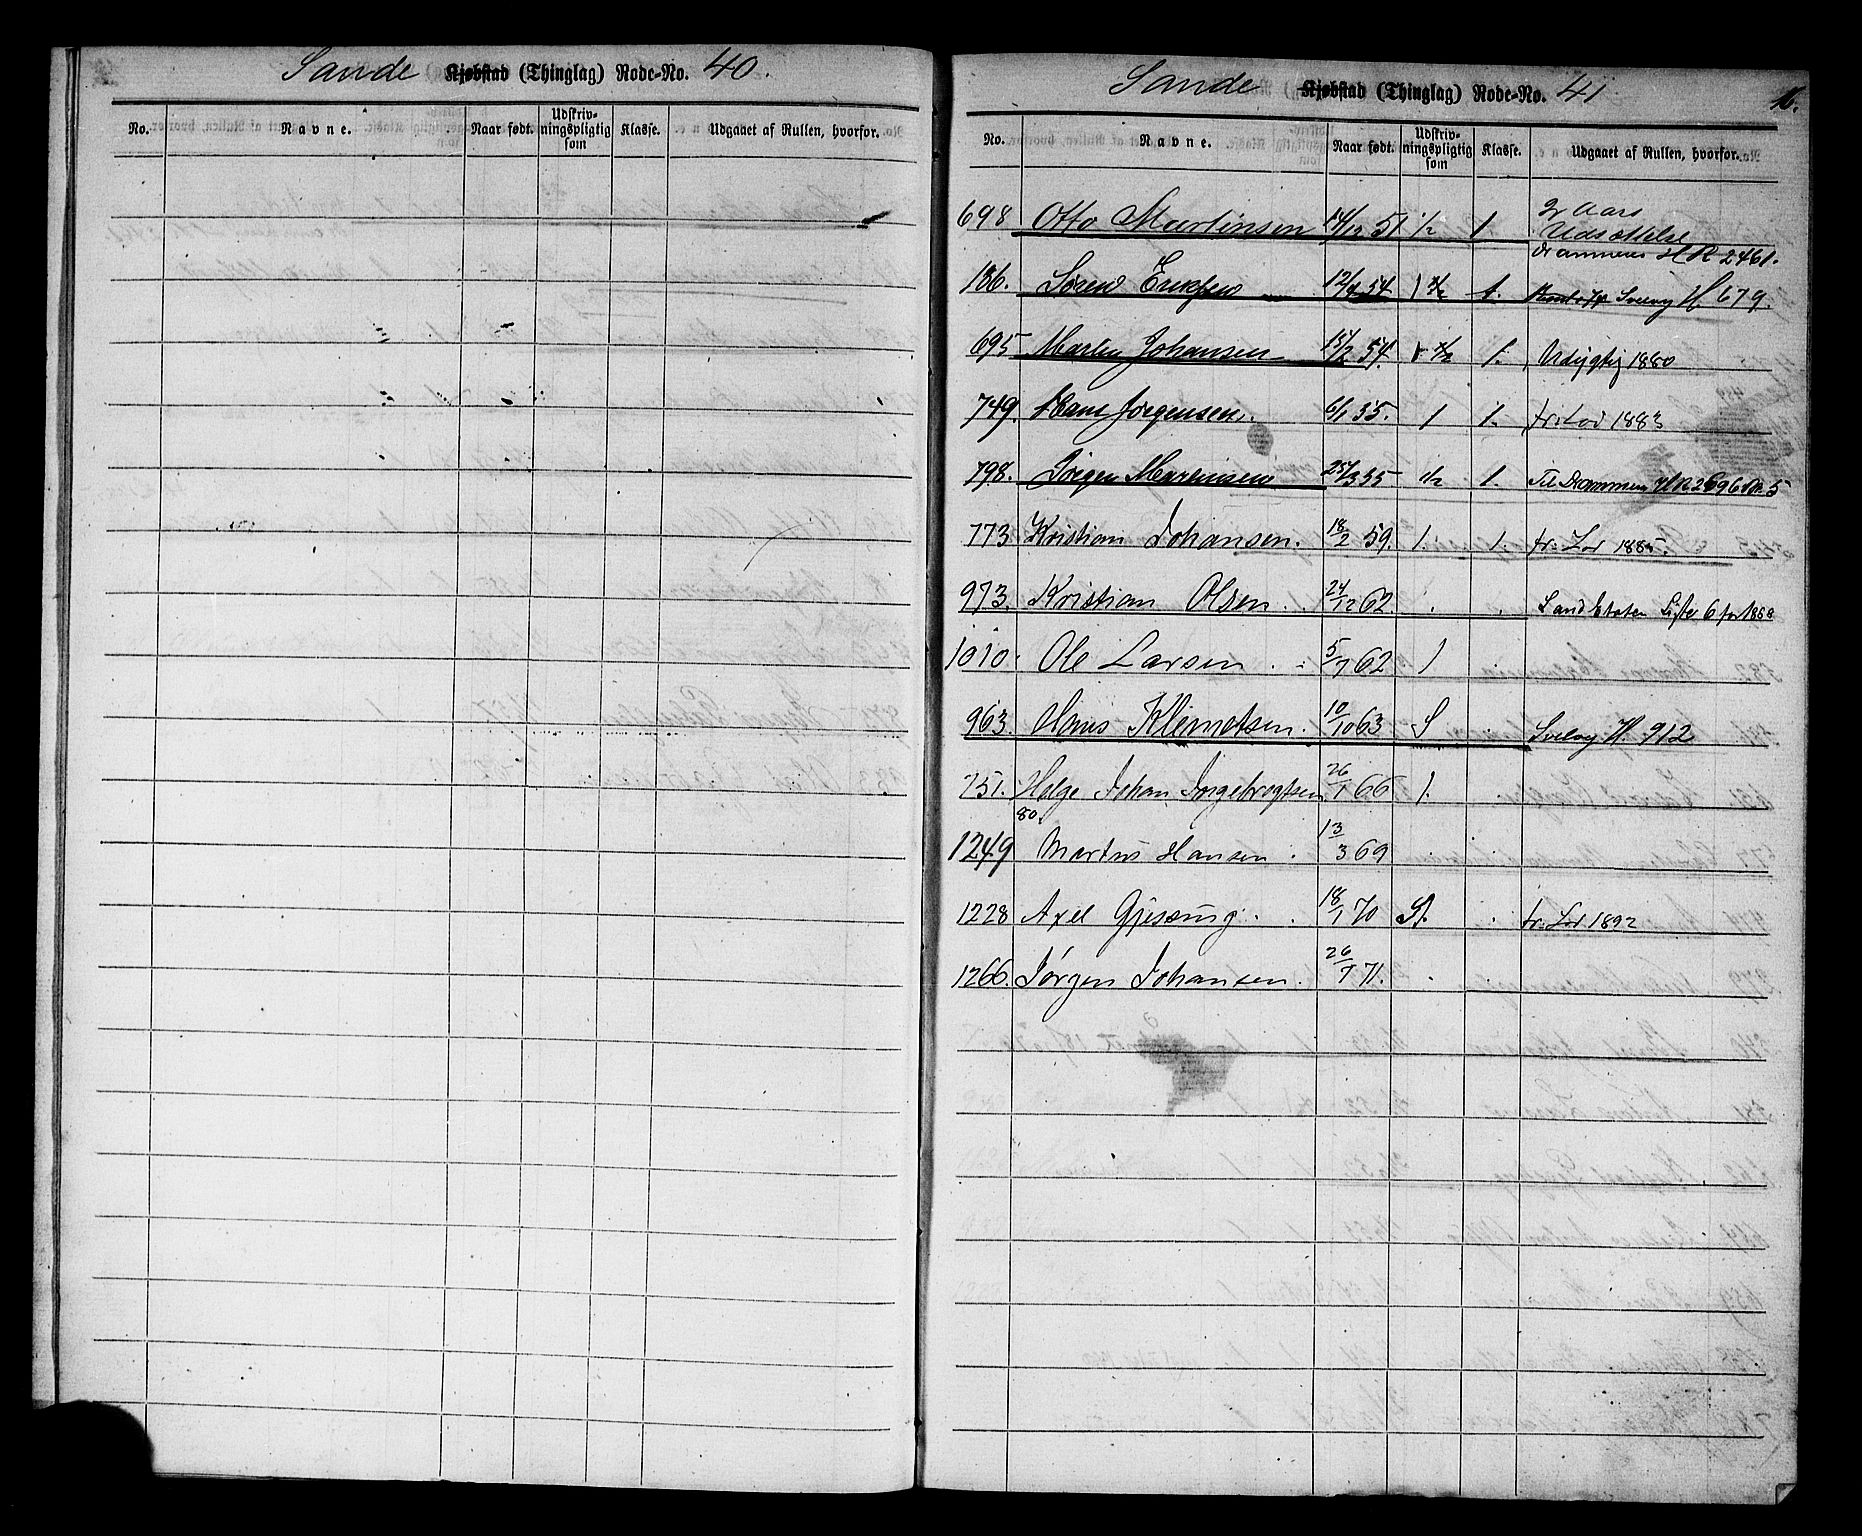 Sande Kjøbstad (Thinglag) Rode-No. 40.
No. Navne. Naar født. Udskriv-ningspligtig som Klasse. Udgaaet af Rullen, hvorfor.
Sande Kjøbstad (Thinglag) Rode-No. 41
No. Navne. Naar født. Udskriv-ningspligtig som Klasse. Udgaaet af Rullen, hvorfor.
698 Otto Martinsen 14/12 51 1/2 1 2 Aars Udsættelse
Drammens HR 2461.
186. Søren Eriksen 12/4 54 1 1/2 1. Svelvig H 679.
695 Martin Johansen 15/2 54. 1/2 1. Udygtig 1880
749. Hans Jørgensen. 6/1 35. 1 1. fr. Lod 1883
798. Jørgen Martinsen 25/3 35 1/2 1. Til Drammen HR 2696
773 Kristian Johansen. 18/2 59. 1. 1. fr. Lod 1885.
973. Kristian Olsen. 24/12 62 Landetaten Liste 6 for 1888
1010. Ole Larsen 5/7 62 1
963. Hans Klemetsen. 10/10 63 S Svelvig H. 912
751. Helge Johan Ingebrogtsen 26/1 66 1.
80.
1249 Martius Hansen. 13/3 69
1228 Axel Gjesæng. 18/1 70 St. fr. Lod 1892
1266. Jørgen Johansen. 26/7 71.